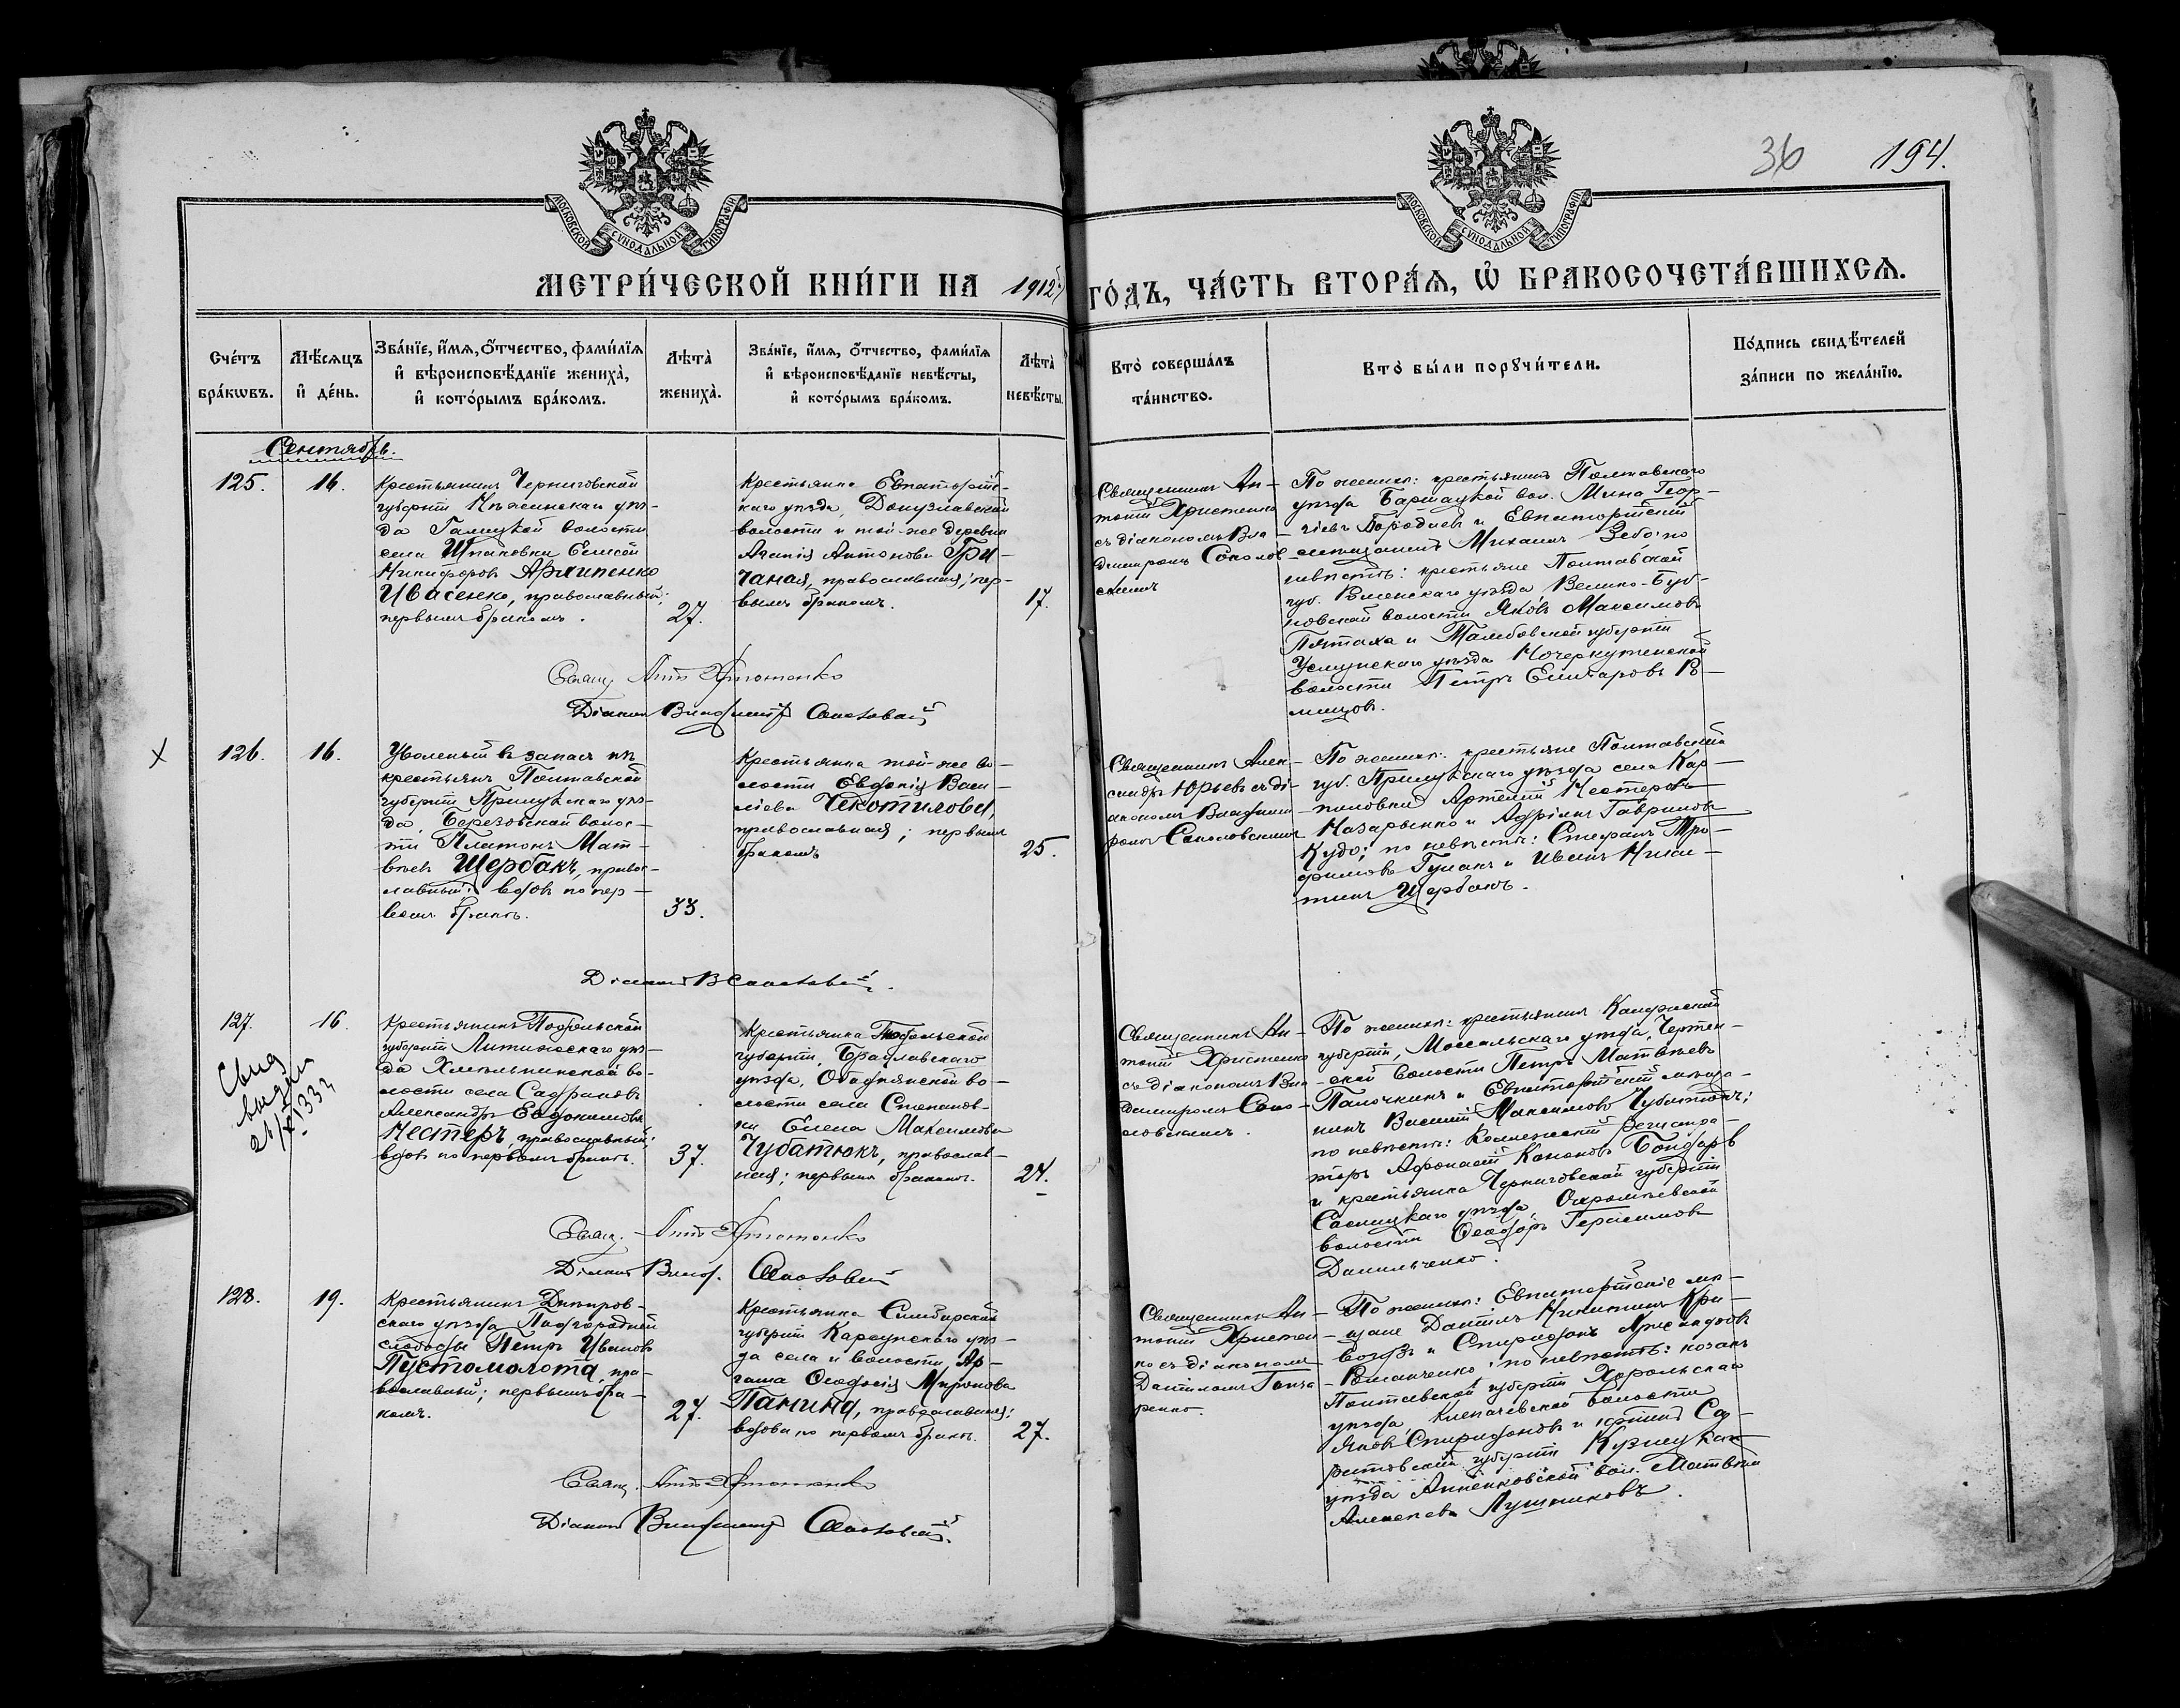 36 194.
МОСКОВСКОЙ СѴНОДАЛЬНОЙ ТИПОГРАФІИ
МОСКОВСКОЙ СѴНОДАЛЬНОЙ ТИПОГРАФІИ
МЕТРИ́ЧЕСКОЙ КНИ́ГИ НА 1912
ГО́ДЪ, ЧА́СТЬ ВТОРА́Ѧ, Ѽ БРАКОСОЧЕТА́ВШИХСѦ.
Сче́тъ
бра́кѡвъ.
Мѣ́сяцъ
и҆ де́нь.
Зва́нїе, и҆́мя, ѻ҆́тчество, фами́лїя
и҆ вѣроисповѣ́данїе жениха̀,
и҆ кото́рымъ бра́комъ.
Лѣта̀
жениха̀.
Зва́нїе, и҆́мя, ѻ҆́тчество, фами́лїя
и҆ вѣроисповѣ́данїе невѣ́сты,
и҆ кото́рымъ бра́комъ.
Лѣта̀
невѣ́сты.
Кто̀ соверша́лъ
та́инство.
Кто̀ бы́ли порꙋчи́тели.
По́дпись свидѣ́телей
за́писи по жела́нїю.
Сентябрь.
125.
16.
Крестьянинъ Черниговской
губерніи Нѣжинскаго уѣз-
да Галицкой волости
села Шпаковки Елисей
Никифоровъ Архипенко
Ивасенко, православный;
первымъ бракомъ.
27.
Крестьянка Евпаторій-
скаго уѣзда, Донузлавской
волости и той-же деревни
Агаѳія Антонова Гри-
чаная, православная; пер-
вымъ бракомъ.
17.
Священникъ Ан-
тоній Христенко
съ діакономъ Вла-
диміромъ Соколов-
скимъ
По женихѣ: крестьянинъ Полтавскаго
уѣзда вол. Мина Геор-
гіевъ Бородаевъ и Евпаторійскій
мѣщанинъ Михаилъ по
невѣстѣ: крестьяне Полтавской
губ. уѣзда Велико-Буб-
новской волости Яковъ Максимовъ
Пятаха и Тамбовской губерніи
Усманскаго уѣзда
волости Петръ
Свящ. Антоній Христенко
Діаконъ Владиміръ Соколовскій
126.
16.
Уволеный въ запасъ изъ
крестьянъ Полтавской
губерніи Прилукскаго уѣз-
да, Березовской волос-
ти Платонъ Мат-
вѣевъ Щербакъ, право-
славный; вдовъ по пер-
вомъ бракѣ.
33.
Крестьянка той-же во-
лости Евдокія Васи-
ліева Чекотилова,
православная; первымъ
бракомъ
25.
Священникъ Алек-
сандръ Юрьевъ съ ді-
акономъ Владими-
ромъ Соколовскимъ
По женихѣ: крестьяне Полтавской
губ. Прилукскаго уѣзда села Кар-
пиловки Артемій Нестеровъ
Назаренко и Адріанъ Гавриловъ
Кудо; по невѣстѣ: Стефанъ Тро-
фимовъ Гуцанъ и Иванъ Ники-
тинъ Щербакъ.
Діаконъ В Соколовскій.
127.
16.
Свид
выдан
Крестьянинъ Подольской
губерніи Литинскаго уѣз-
да Хмельникской во-
лости села
Александръ Евдокимовъ
Нестеръ, православный;
вдовъ по первомъ бракѣ.
37.
Крестьянка Подольской
губерніи, Брацлавскаго
уѣзда, Ободнянской во-
лости села Степанов-
ки Елена Максимова
Чубатюкъ, православ-
ная; первымъ бракомъ.
24.
Священникъ Ан-
тоній Христенко
съ діакономъ Вла-
диміромъ Соко-
ловскимъ.
По женихѣ: крестьянинъ Калужской
губерніи, Мосальскаго уѣзда, Чертен-
ской волости Петръ Матвѣевъ
Палочкинъ и Евпаторійскій мѣща-
нинъ Василій Максимовъ Чубатюкъ;
по невѣстѣ: Коллежскій регистра-
торъ Афонасій Кононовъ Бондарь
и крестьянка Черниговской губерніи
Сосницкаго уѣзда, Охромѣевской
волости Ѳеодоръ Герасимовъ
Данильченко.
Свящ. Антоній Христенко
Діаконъ Влад. Соколовскій
128.
19.
Крестьянинъ Днѣпров-
скаго уѣзда Подгородней
слободы Петръ Ивановъ
Пустомолота, пра-
вославный; первымъ бра-
комъ.
27.
Крестьянка Симбирской
губерніи Карсунскаго уѣз-
да села и волости Ар-
гаша Ѳеодосія Миронова
Панина, православная;
вдова по первомъ бракѣ.
27.
Священникъ Ан-
тоній Христен-
ко съ діакономъ
Даніиломъ Гонча-
ренко.
По женихѣ: Евпаторійскіе мѣ-
щане Даніилъ Никитинъ Кри-
и Спиридонъ
Романченко; по невѣстѣ: козакъ
Полтавской губерніи Хорольскаго
уѣзда, волости
Яковъ Спиридоновъ и Са-
ратовской губерніи Кузнецкаго
уѣзда Анненковской вол. Матвѣй
Алексѣевъ Лушниковъ.
Свящ. Антоній Христенко
Діаконъ Владиміръ Соколовскій.